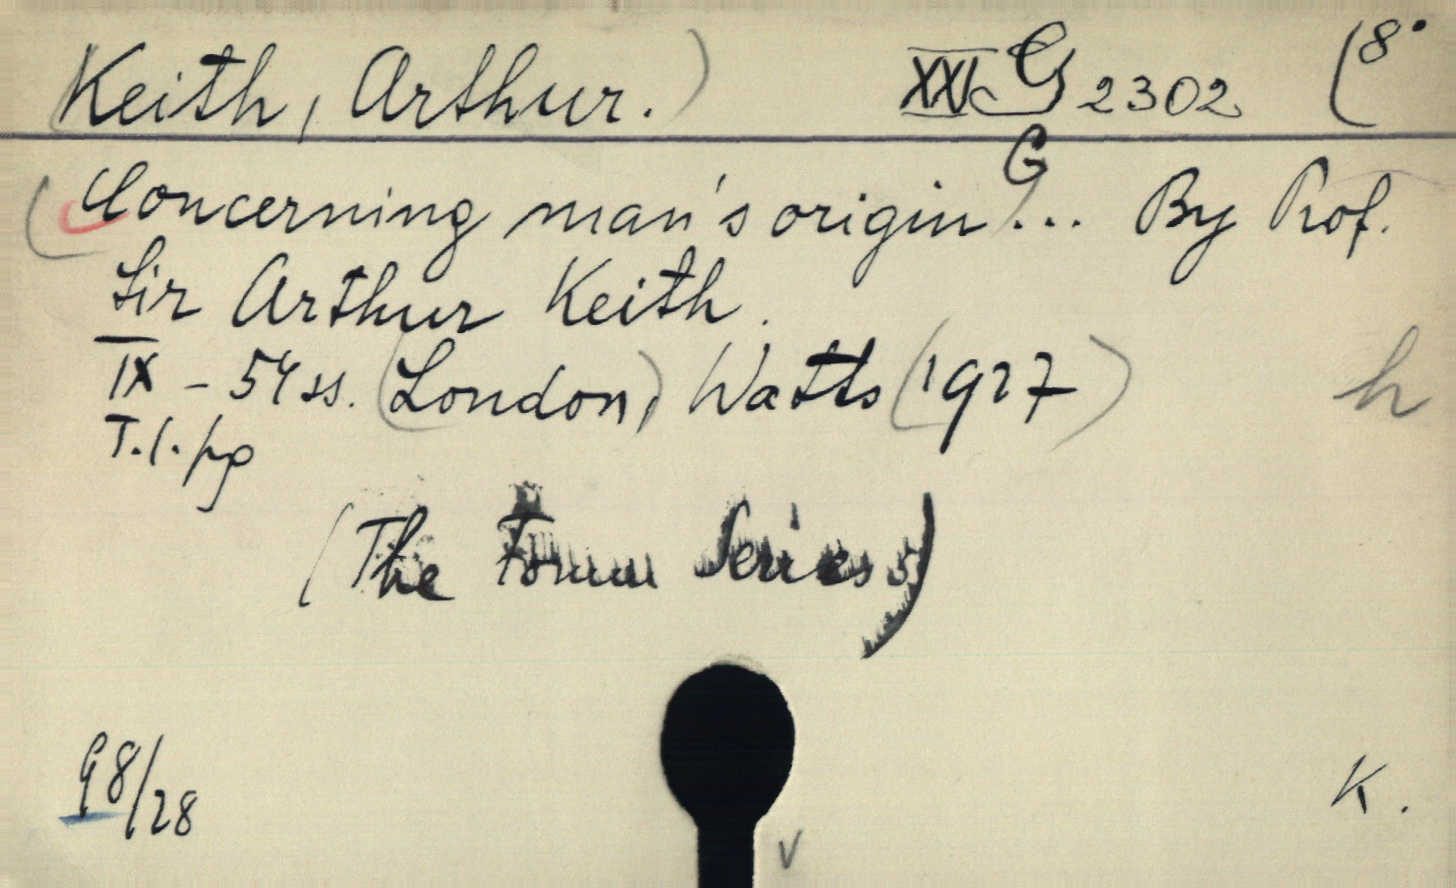 Keith, Arthur.) XXI.G 2302 (8°
G
(Concerning man's origin)... By Prof.
Sir Arthur Keith.
IX - 54 ss. (London), Watts (1927)
h
T. l. pg
(The Forum Series 5)
98/28
K.
v